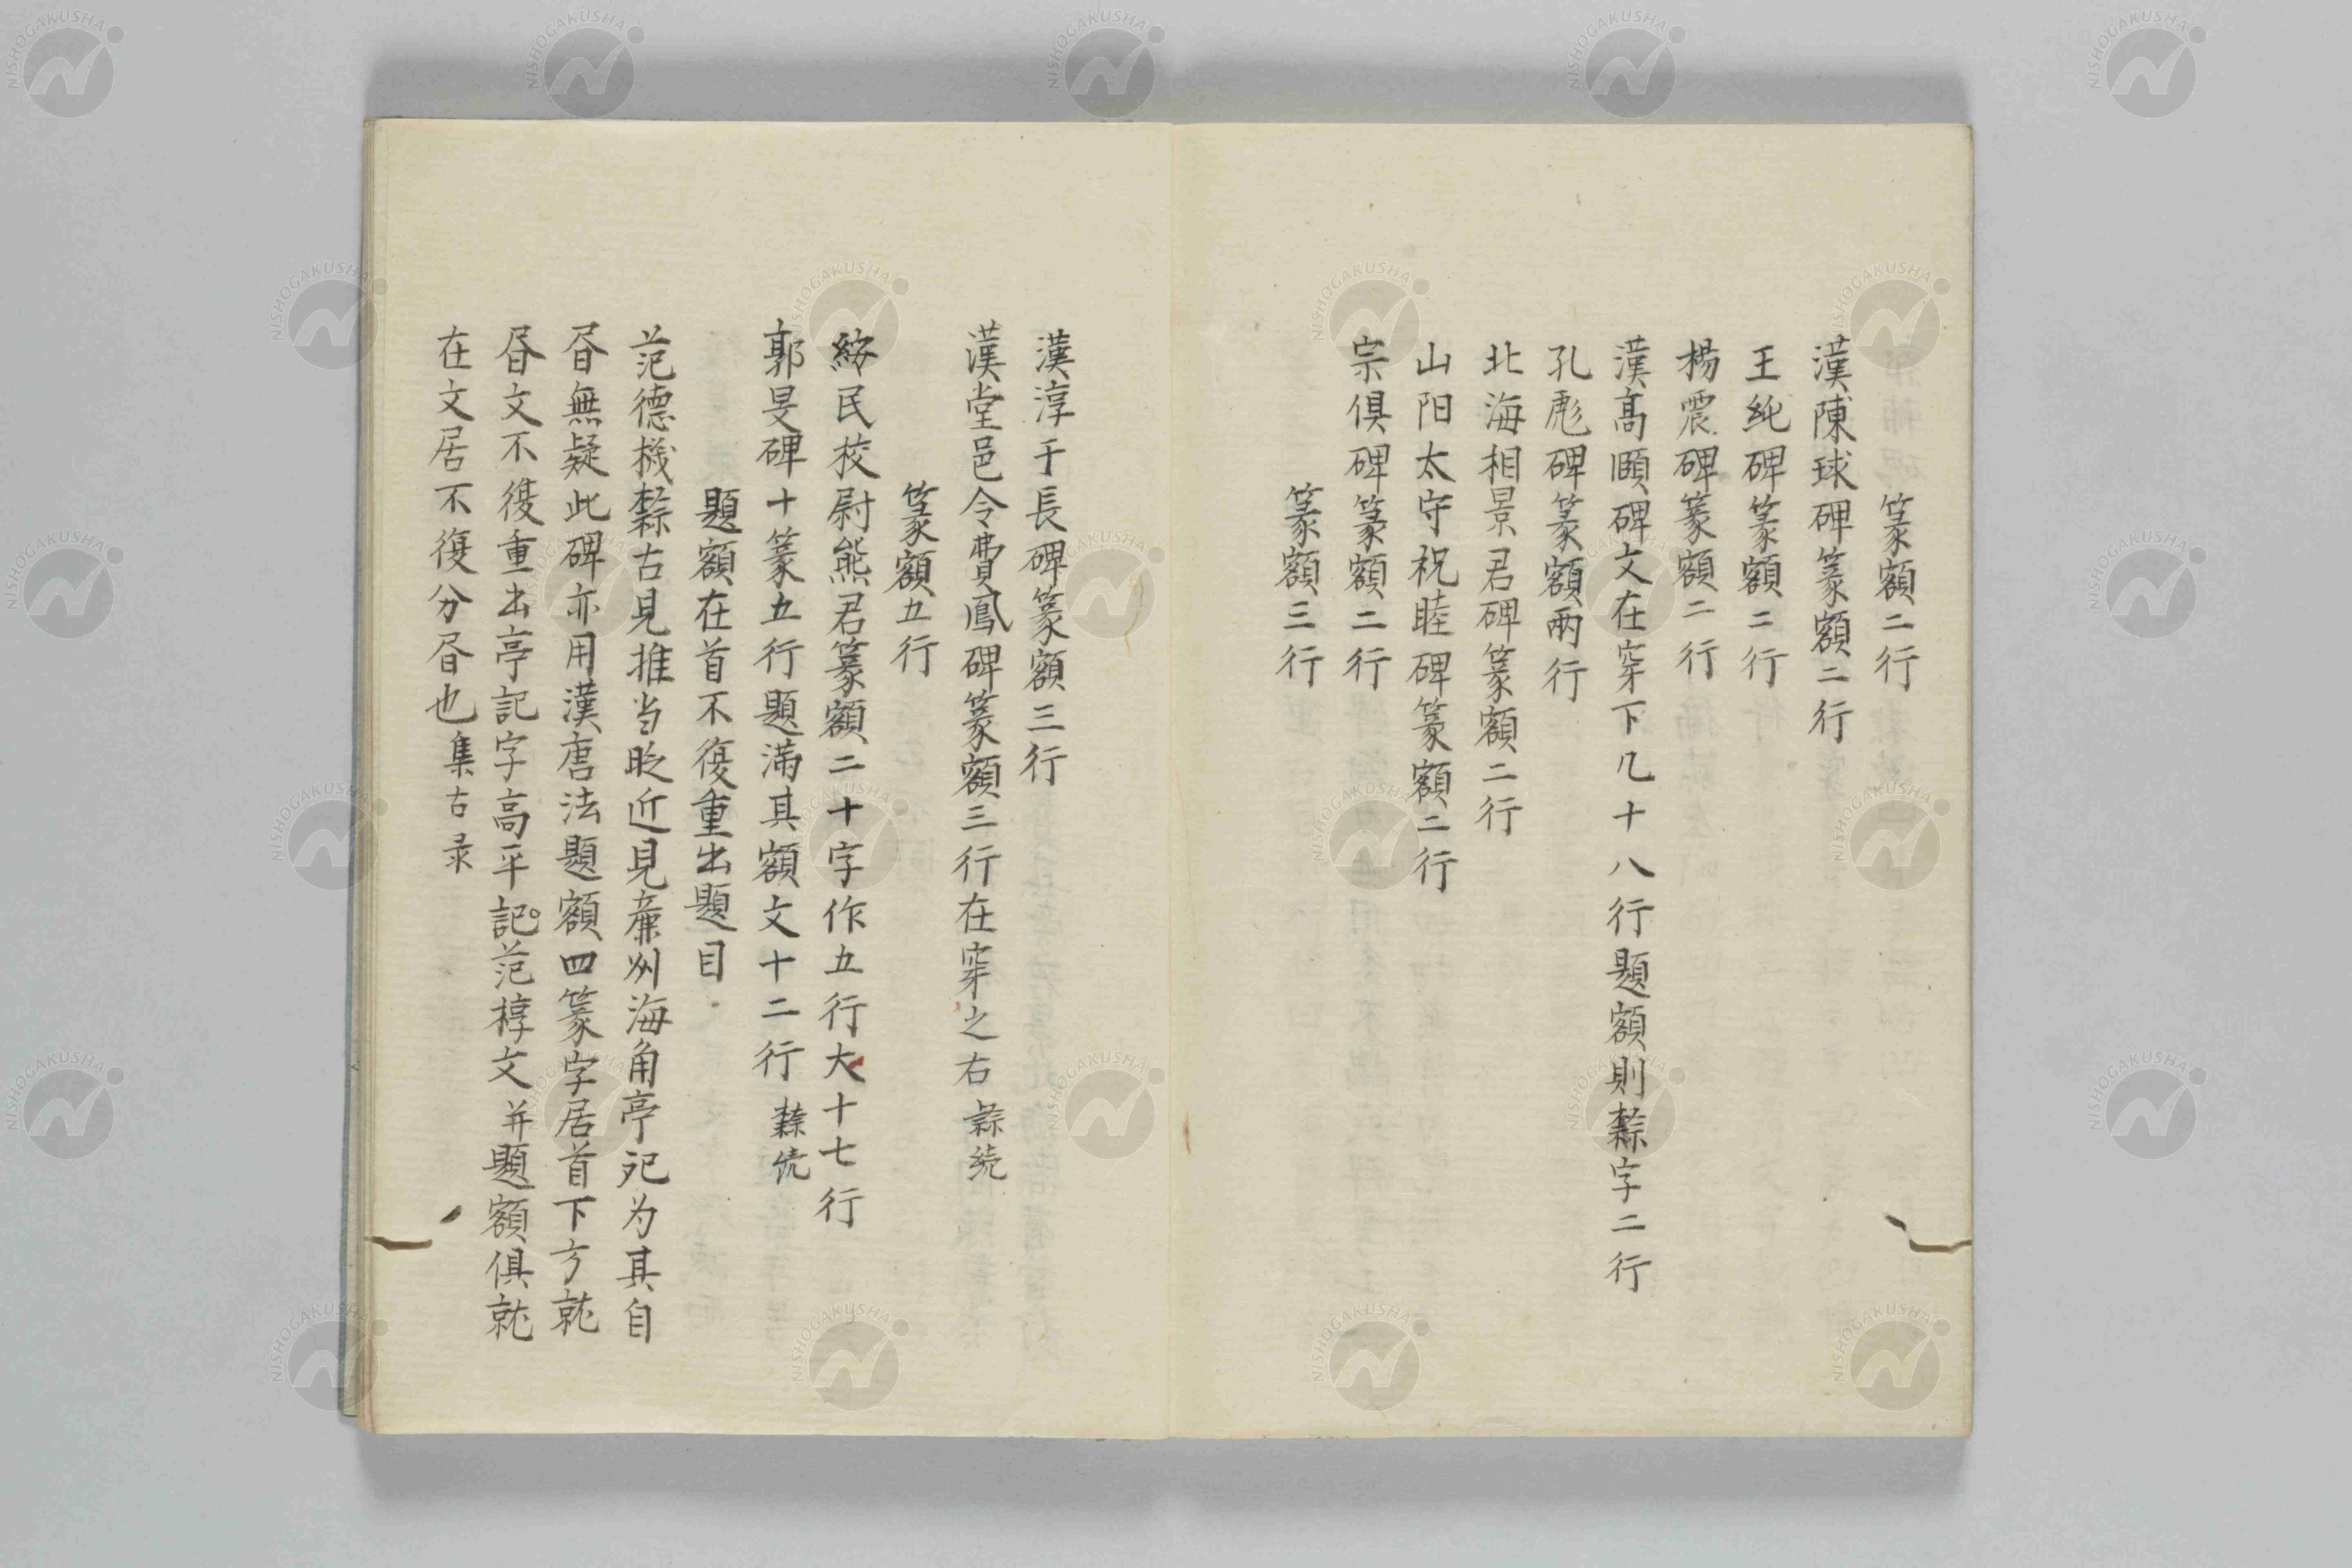 篆額二行
漢陳球碑篆額二行
王純碑篆額二行
楊震碑篆額二行
漢高頤碑文在穿下凡十八行題額則隸字二行
孔彪碑篆額兩行
北海相景君碑篆額二行
山阳太守祝睦碑篆額二行
宗俱碑篆額二行
篆額三行
漢淳于長碑篆額三行
漢堂邑令費鳳碑篆額三行在穿之右隸続
篆額五行
綏民校尉熊君篆額二十字作五行大十七行
郭旻碑十篆五行題満其額文十二行隸続
題額在首不復重出題目
范德機隸古見推当时近見廉州海角亭記为其自
昏無疑此碑亦用漢唐法題額四篆字居首下方就
昏文不復重出亭記字高平記范椁文并題額俱就
在文居不復分昏也集古录
NISHOGAKUSHA